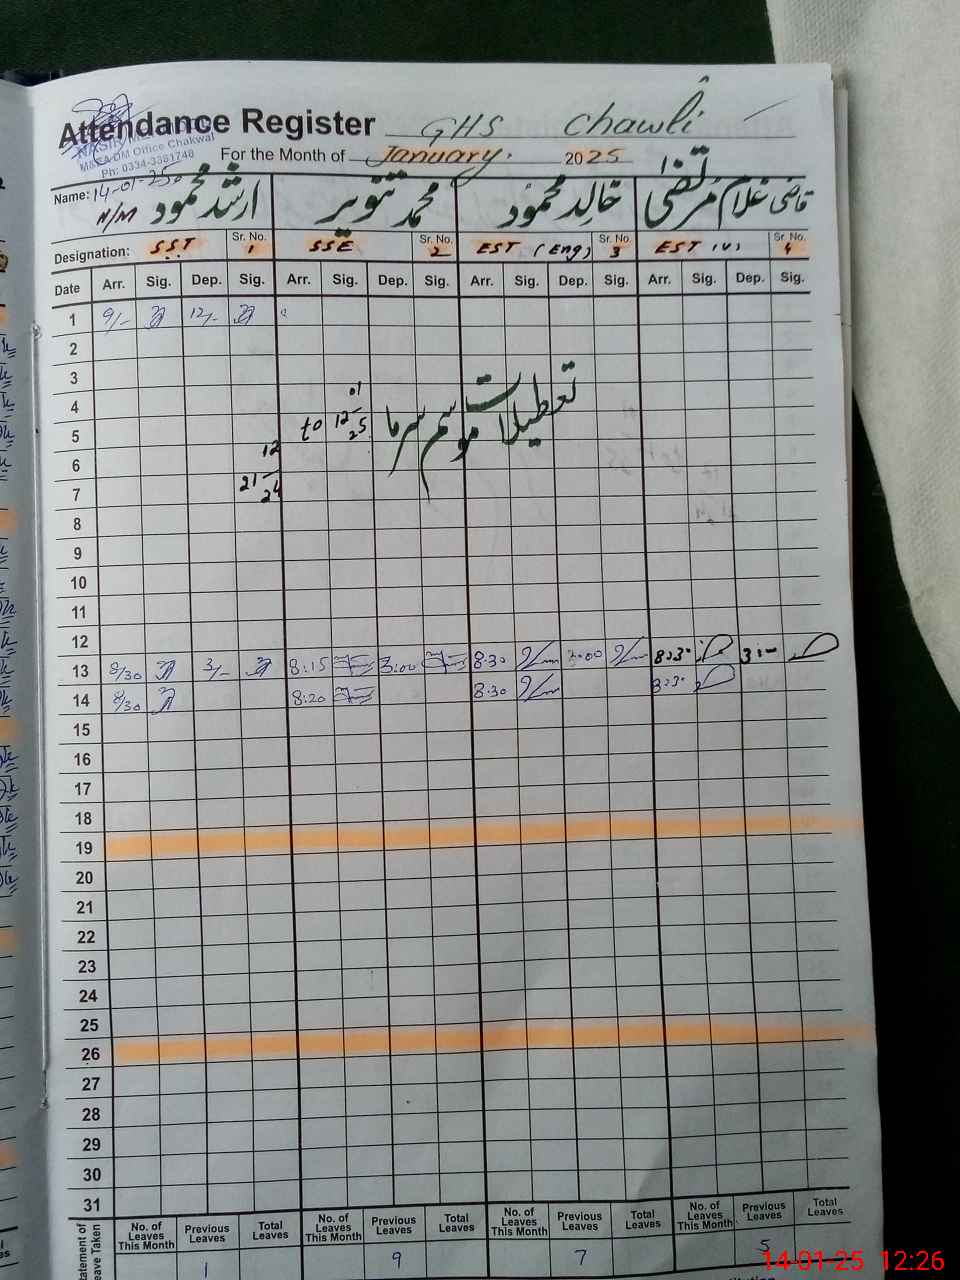 Attendance Register GHS Chawli
M&EA DM Office Chakwal
Ph: 0334-3381748
For the Month of January. 2025
14-01-25
Name: ارشد محمود H/M محمد تنویر خالد محمود قاضی غلام مرتضیٰ
Designation: SST Sr. No. 1 SSE Sr. No. 2 EST (Eng) Sr. No. 3 EST (U) Sr. No. 4
Date Arr. Sig. Dep. Sig. Arr. Sig. Dep. Sig. Arr. Sig. Dep. Sig. Arr. Sig. Dep. Sig.
1 9/- 12/-
2
3
4
تعطیلات موسم سرما
01
to 12-25
5
6
12
21-24
7
8
9
10
11
12
13 8/30 3/- 8:15 3:00 8:30 3:00 8:30 3:-
14 8/30 8:20 8:30 8:30
15
16
17
18
19
20
21
22
23
24
25
26
27
28
29
30
31
Statement of Leave Taken
No. of Leaves This Month Previous Leaves Total Leaves No. of Leaves This Month Previous Leaves Total Leaves No. of Leaves This Month Previous Leaves Total Leaves No. of Leaves This Month Previous Leaves Total Leaves
1 9 7 5
14-01-25 12:26